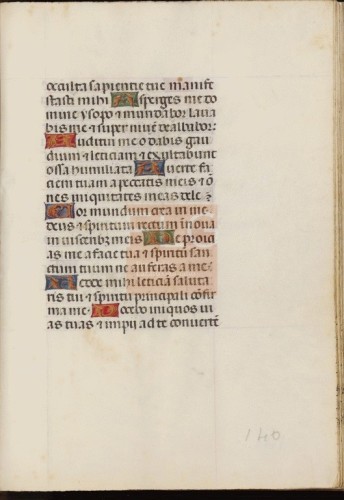 occulta sapientie tue manife
stasti mihi Asperges me do
mine ysopo & mundabor laua
bis me & super niuē dealbabor:
Auditui meo dabis gau
dium & leticiam & exultabunt
ossa humiliata Auerte fa
ciem tuam a peccatis meis & ō
nes iniquitates meas dele:
Cor mundum crea in me
deus & spiritum rectum īnoua
in uisceribz meis Ne proici
as me a facie tua & spiritū san
ctum tuum ne auferas a me:
Redde mihi leticiā saluta
ris tui & spiritu principali cōfir
ma me. Docebo iniquos ui
as tuas & impii ad te conuertē
140